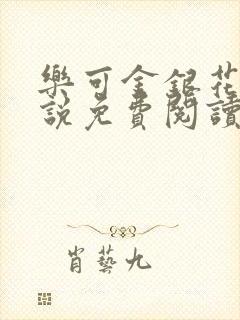 樂可金銀花
說免費閱讀
肖藝九